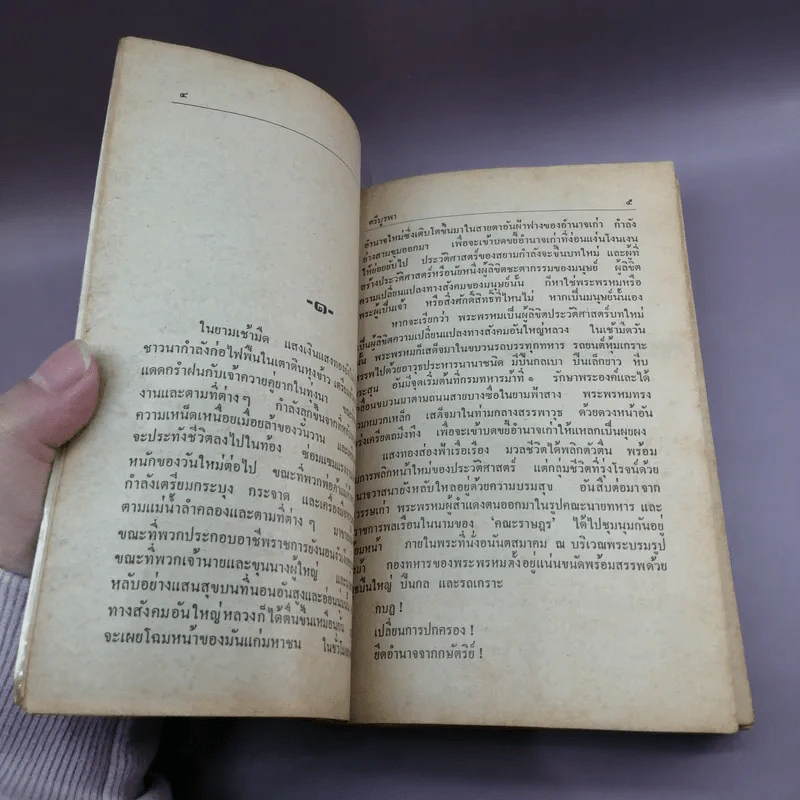 ๔
-๒-
ในยามเช้ามืด แสงเงินแสงทอง
ชาวนากำลังก่อไฟฟืนในเตาดินหุงข้าว
แดดกรำฝนกับเจ้าควายคู่ยากในทุ่งนา
งานและตามที่ต่างๆ กำลังลุกขึ้นจาก
ความเหน็ดเหนื่อยเมื่อยล้าของวันวาน
จะประทังชีวิตลงไปในท้อง ซ่อมแซม
หนักของวันใหม่ต่อไป ขณะที่พวกพ่อค้า
กำลังเตรียมกระบุง กระจาด และเครื่อง
ตามแม่น้ำลำคลองและตามที่ต่าง ๆ
ขณะที่พวกประกอบอาชีพราชการยังนอน
ขณะที่พวกเจ้านายและขุนนางผู้ใหญ่
หลับอย่างแสนสุขบนที่นอนอันสูงและอ่อน
ทางสังคมอันใหญ่หลวงก็ได้ตื่นขึ้นเหมือนกัน
จะเผยโฉมหน้าของมันแก่มหาชน
ศรีบูรพา ๕
อำนาจใหม่ซึ่งเติบโตขึ้นมาในสายตาอันฝ้าฟางของอำนาจเก่า กำลัง
ย่างสามขุมออกมา เพื่อจะเข้าบดขยี้อำนาจเก่าที่ง่อนแง่นโงนเงน
ให้ย่อยยับไป ประวัติศาสตร์ของสยามกำลังจะขึ้นบทใหม่ และผู้ที่
สร้างประวัติศาสตร์หรือนัยหนึ่งผู้ลิขิตชะตากรรมของมนุษย์ ผู้ลิขิต
ความเปลี่ยนแปลงทางสังคมของมนุษย์นั้น ก็หาใช่พระพรหมหรือ
พระผู้เป็นเจ้า หรือสิ่งศักดิ์สิทธิ์ที่ไหนไม่ หากเป็นมนุษย์นั้นเอง
หากจะเรียกว่า พระพรหมเป็นผู้ลิขิตประวัติศาสตร์บทใหม่
เป็นผู้ลิขิตความเปลี่ยนแปลงทางสังคมอันใหญ่หลวง ในเช้ามืดวัน
นั้น พระพรหมก็เสด็จมาในขบวนรถบรรทุกทหาร รถยนต์หุ้มเกราะ
สรรพไปด้วยอาวุธประหารนานาชนิด มีปืนกลเบา ปืนเล็กยาว หีบ
กระสุน อันมีจุดเริ่มต้นที่กรมทหารม้าที่ ๑ รักษาพระองค์และได้
เคลื่อนขบวนมาตามถนนสายบางซื่อในยามฟ้าสาง พระพรหมทรง
สวมหมวกเหล็ก เสด็จมาในท่ามกลางสรรพาวุธ ด้วยดวงหน้าอัน
เคร่งเครียดถมึงทึง เพื่อจะเข้าบดขยี้อำนาจเก่าให้แหลกเป็นผุยผง
แสงทองส่องฟ้าเรื่อเรือง มวลชีวิตได้พลิกตัวตื่น พร้อม
การพลิกหน้าใหม่ของประวัติศาสตร์ แต่กลุ่มชีวิตที่รุ่งโรจน์ด้วย
อำนาจวาสนายังหลับใหลอยู่ด้วยความบรมสุข อันสืบต่อมาจาก
เก่า พระพรหมผู้สำแดงตนออกมาในรูปคณะนายทหาร และ
ข้าราชการพลเรือนในนามของ 'คณะราษฎร' ได้ไปชุมนุมกันอยู่
ภายในพระที่นั่งอนันตสมาคม ณ บริเวณพระบรมรูป
กองทหารของพระพรหมตั้งอยู่แน่นขนัดพร้อมสรรพด้วย
ปืนใหญ่ ปืนกล และรถเกราะ
กบฏ !
เปลี่ยนการปกครอง !
ยึดอำนาจจากกษัตริย์ !